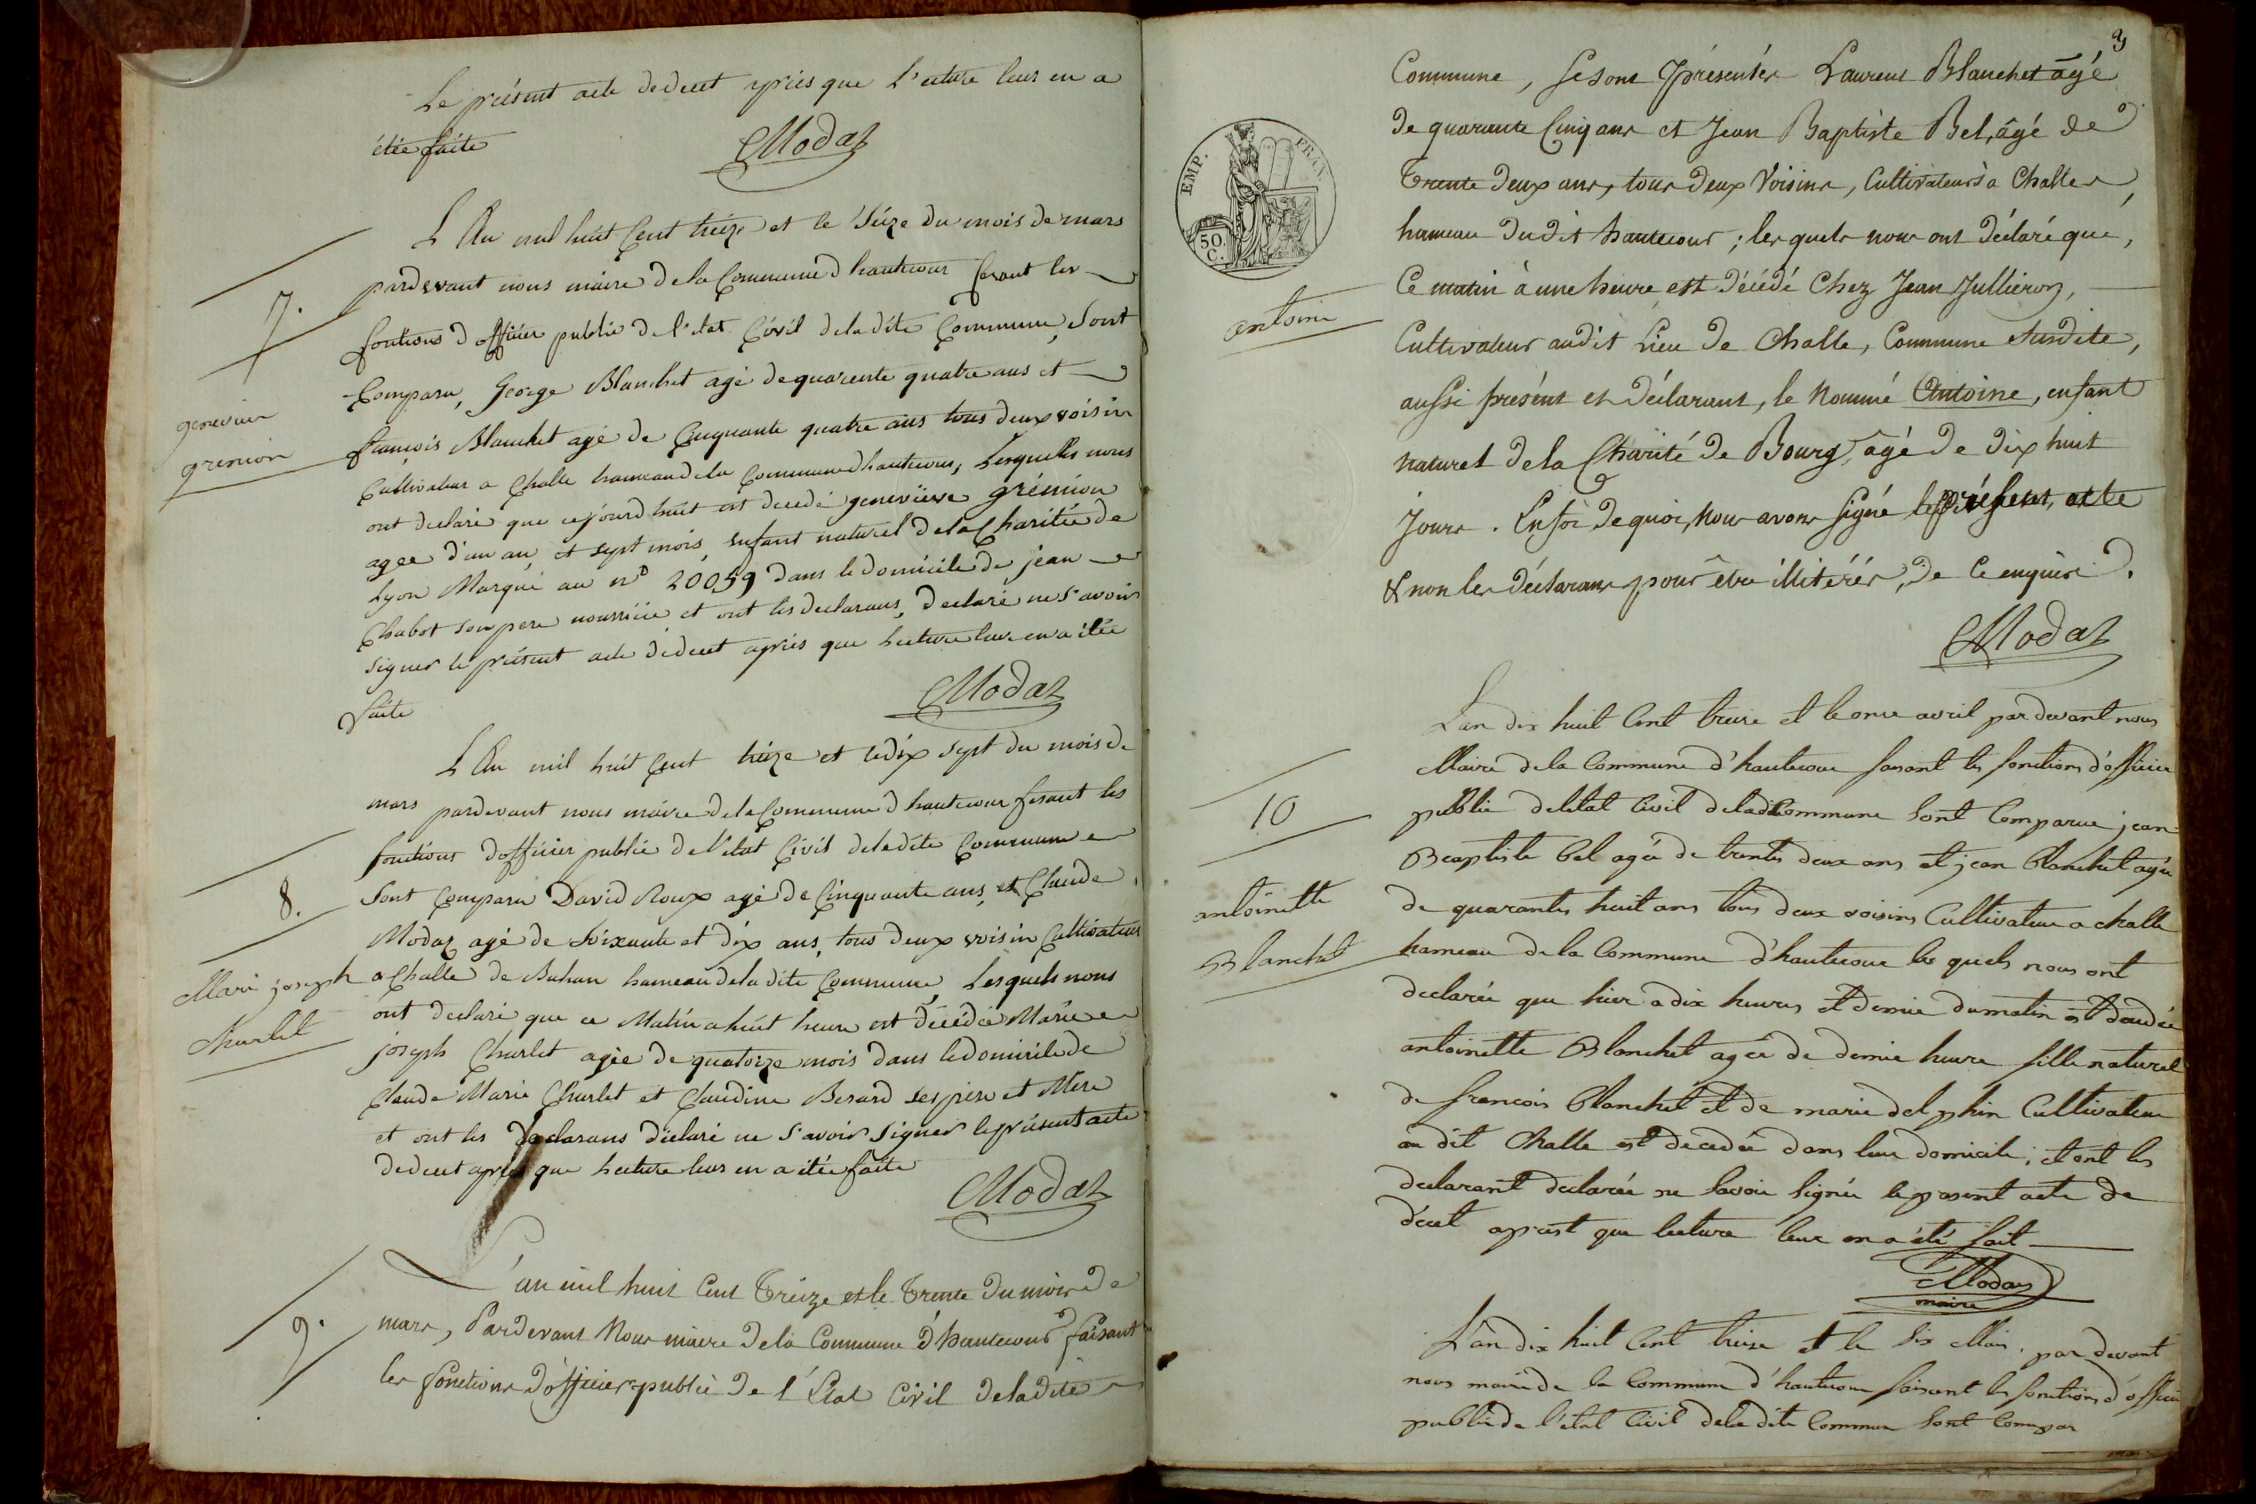 Le présent acte de decet aprés que l'ecture leur en a
étée faite
Modaz
L'An mil huit Cent treize et le seize du mois de mars
7.
pardevant nous maire de la Commune d'hautecour fesant les
fontions d'officier public de l'etat Civil de la dite Commune, sont
Comparu, George Blanchet agé de quarente quatre ans et
genevieve
françois Blanchet agé de Cinquante quatre ans tous deux voisin
grenion
Cultivateur a Challe hameau de la Commune d'hautecour, Lesquelles nous
ont declaré que cejourd'huit est decedé geneviève grénion
agee d'un an et sept mois, enfant naturel de la Charitée de
Lyon Marqué au n° 20059 dans le domicile de jean
Chabot son pere nourricie et ont les declarans, declaré ne s'avoir
signer le présent acte dédecet aprés que Lecture leur en a étée
faite
Modaz
L'An mil huit Cent treize et ledix sept du mois de
mars pardevant nous maire de la Commune d'hautecour fesant les
fonctions d'officier public de l'etat Civil de ladite Commune
8.
sont Comparu David Roux agé de Cinquante ans, et Claude
Modaz agé de Soixante et dix ans, tous deux voisin Cultivateur
Marie joseph
a Challe de Buhan hameau de la dite Commune, Lesquels nous
ont declaré que ce Matin a huit heure est décédée Marie
Churlet
joseph Churlet agée de quatorze mois dans le domicile de
Claude Marie Churlet et Claudine Berard ses pére et Mére
et ont les declarans déclaré ne s'avoir signer le présent acte
dedecet aprés que Lecture leur en a étée faite
Modaz
L'an mil huit Cent Treize et le Trente du mois de
9.
mars, Pardevant Nous maire de la Commune d'hautecour faisant
les fonctions d'officier public de l'État Civil de la dite
3
Commune, se sont présentés Laurent Blanchet âgé
de quarante Cinq ans et Jean Baptiste Bel, âgé de
Trente deux ans, tous deux Voisins, Cultivateurs à Challes,
EMP. FRAN.
50. C.
hameau dudit hautecour ; lesquels nous ont déclaré que,
Ce matin à une heure est décédé Chez Jean Jullieron,
antoine
Cultivateur audit Lieu de Challe, Commune Susdite,
aussi présent et déclarant, le Nommé Antoine, enfant
naturel de la Charité de Bourg, âgé de dix huit
Jours. En foi de quoi, Nous avons signé le présent acte
& non les déclarans pour être illitérés, de Ce enquis.
Modaz
L'an dix huit Cent treise et le onse avril par devant nous
Maire de la Commune d'hautecour faisant les fonctions d'officier
10
public deletat Civil deladiCommune sont Comparue jean
Beaptiste bel agée de trente deux ans et jean blanchet agée
antoinette
de quarantes huit ans tous deux voisins Cultivateur a challe
Blanchet
hameau de la Commune d'hautecour les quels nous ont
declarée que hier a dix heures et demie dumatin est decedée
antoinette Blanchet agée de demie heure fille naturel
de francois blanchet et de marie delphin Cultivateur
au dit Challe est decedée dans leur domicile ; et ont les
declarant declarée ne savoir signée le present acte de
décet aprest que lecture leur en a été fait
Modaz
maire
L'an dix huit Cent treise et le six Mai par devant
nous maire de la Commune d'hautecour faisant les fonctions d'officier
public de l'etat Civil dela dite Commune sont Compar